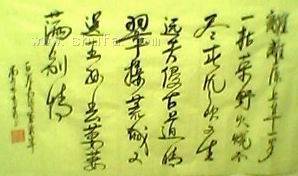 離離原上草一岁
一枯荣野火烧不
尽春风吹又生
远芳侵古道晴
翠接荒城又
送王孙去萋萋
满别情